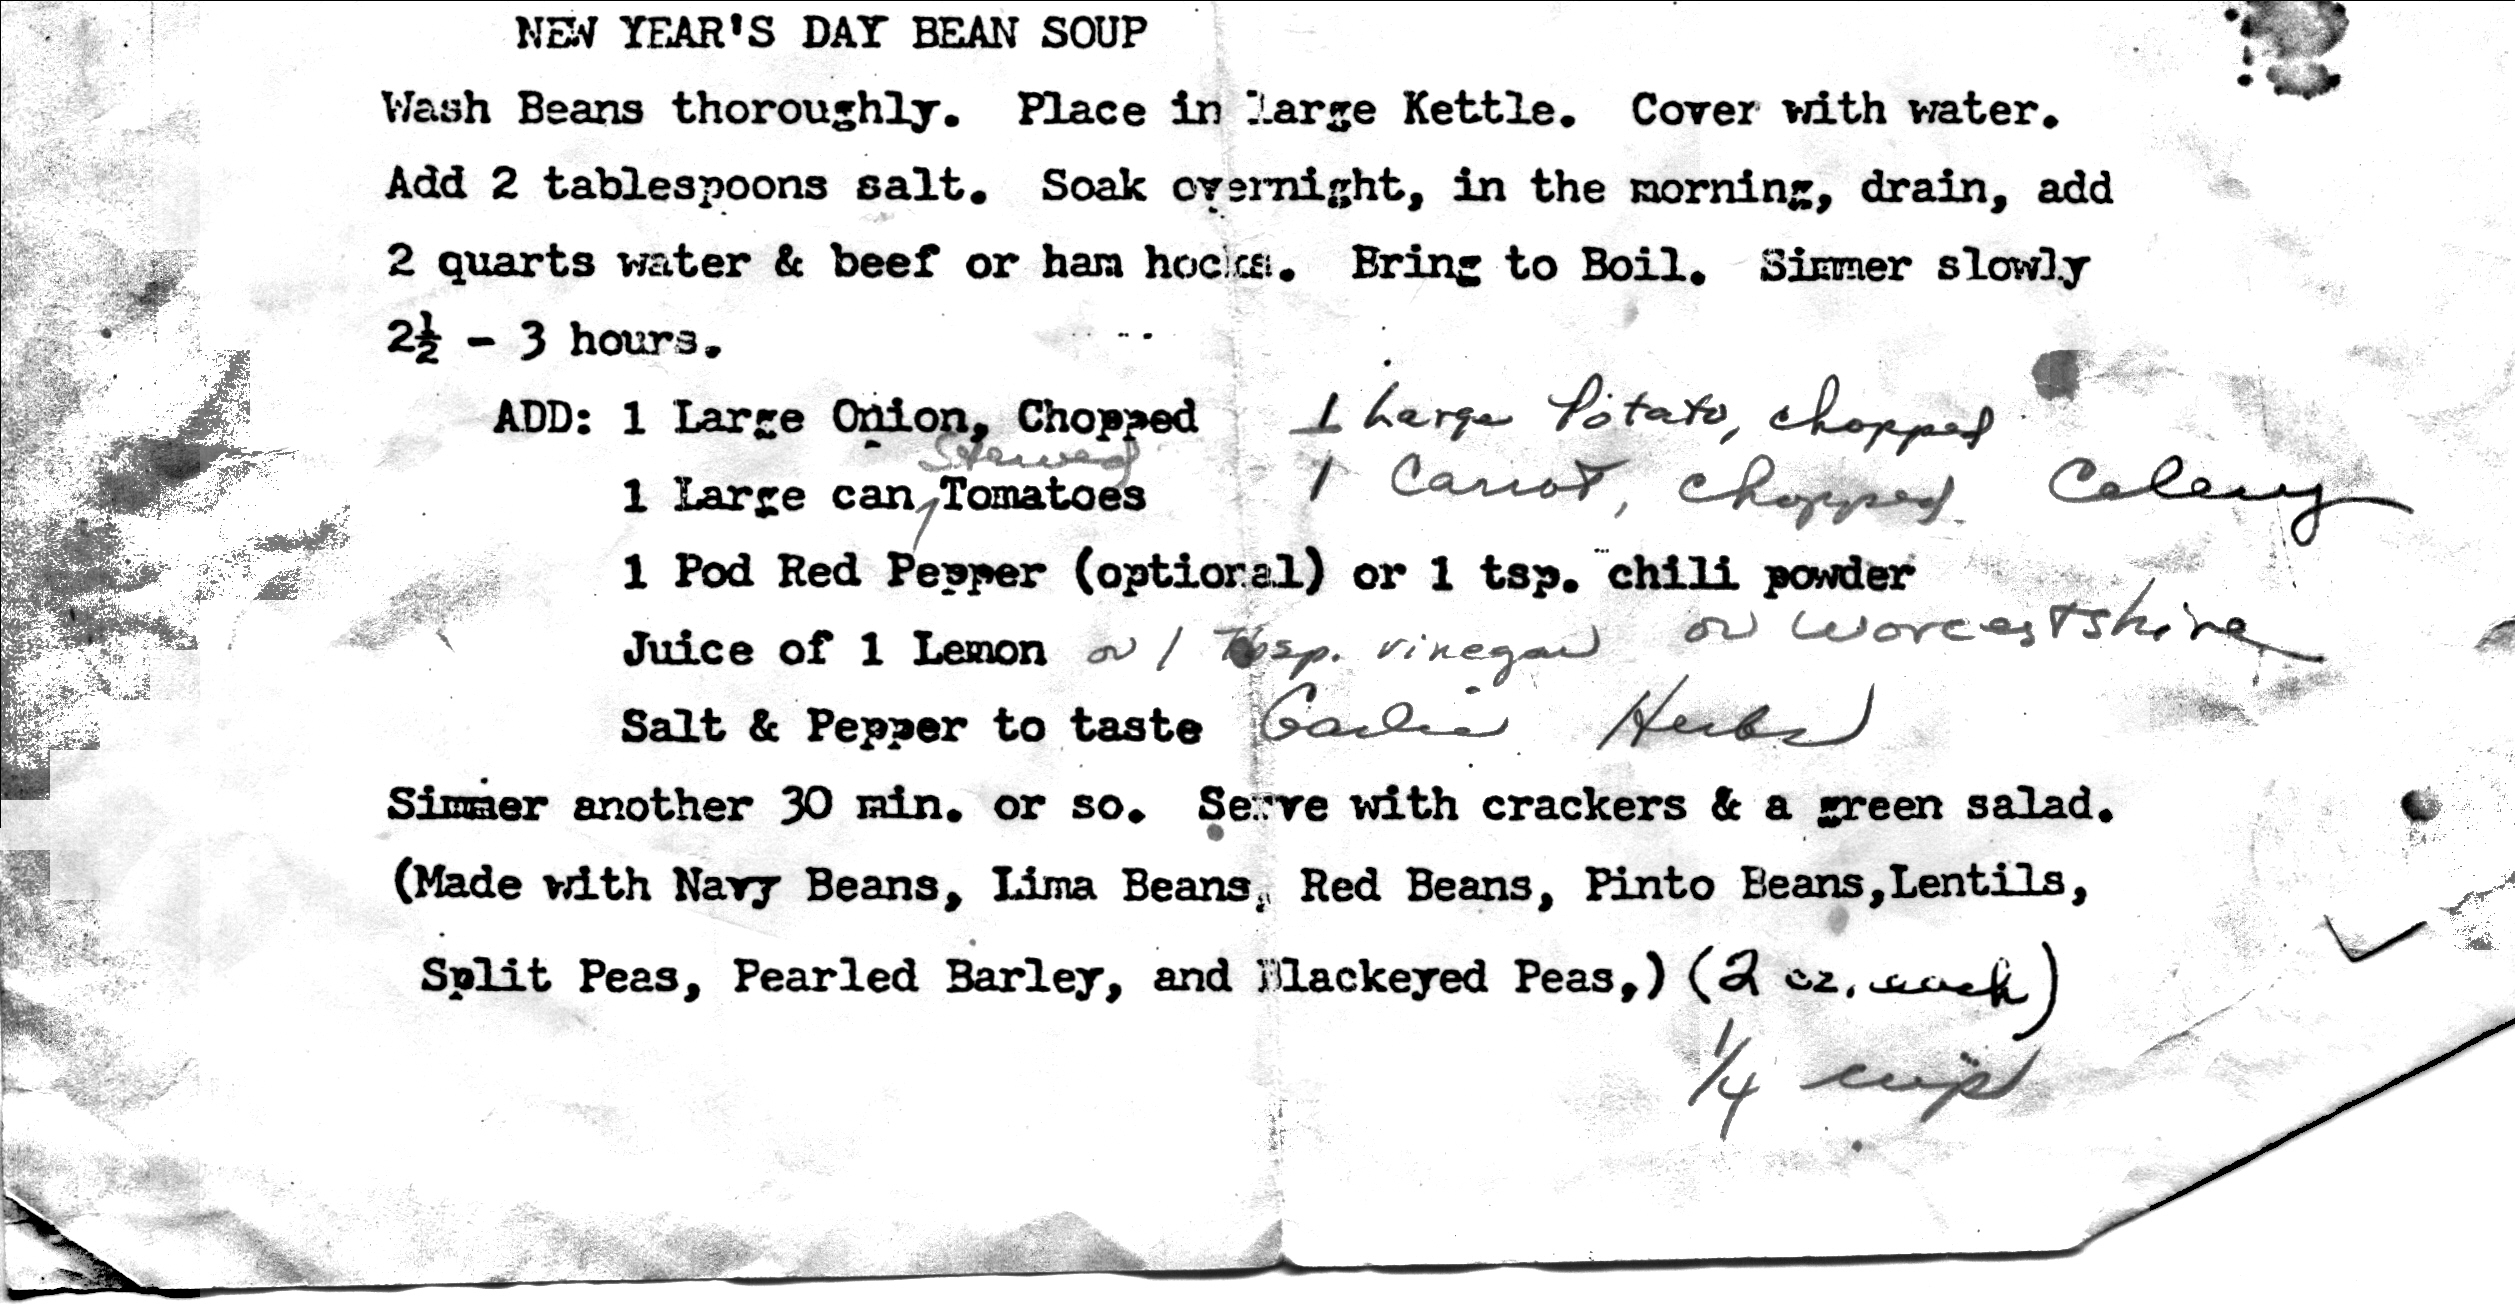 NEW YEAR'S DAY BEAN SOUP
Wash Beans thoroughly. Place in large Kettle. Cover with water.
Add 2 tablespoons salt. Soak overnight, in the morning, drain, add
2 quarts water & beef or ham hocks. Bring to Boil. Simmer slowly
2½ - 3 hours.
ADD: 1 Large Onion, Chopped 1 Large Potato, chopped
Stewed
1 Large can Tomatoes 1 Carrot, chopped Celery
1 Pod Red Pepper (optional) or 1 tsp. chili powder
Juice of 1 Lemon or 1 Tbsp. vinegar or Worcestshire
Salt & Pepper to taste Garlic Herbs
Simmer another 30 min. or so. Serve with crackers & a green salad.
(Made with Navy Beans, Lima Beans, Red Beans, Pinto Beans,Lentils,
Split Peas, Pearled Barley, and Blackeyed Peas,) (2 oz. each)
1/4 cup